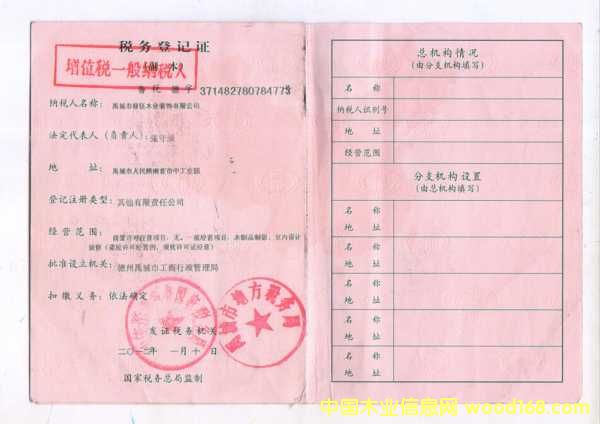 税务登记证
（副 本）
增值税一般纳税人
鲁税 德字 371482780784773
纳税人名称：
禹城市 木业装饰有限公司
法定代表人（负责人）：
张守
地 址：
登记注册类型：
其他有限责任公司
经营范围：
前置许可经营项目：无。一般经营项目：木制品制造、室内设计
装修
批准设立机关：
德州禹城市工商行政管理局
扣缴义务：
依法确定
禹城市地方税务局
发证税务机关
二〇一二年 一月十日
国家税务总局监制
总机构情况
（由分支机构填写）
名 称
纳税人识别号
地 址
经营范围
分支机构设置
（由总机构填写）
名 称
地 址
名 称
地 址
名 称
地 址
名 称
地 址
名 称
地 址
中国木业信息网 wood168.com